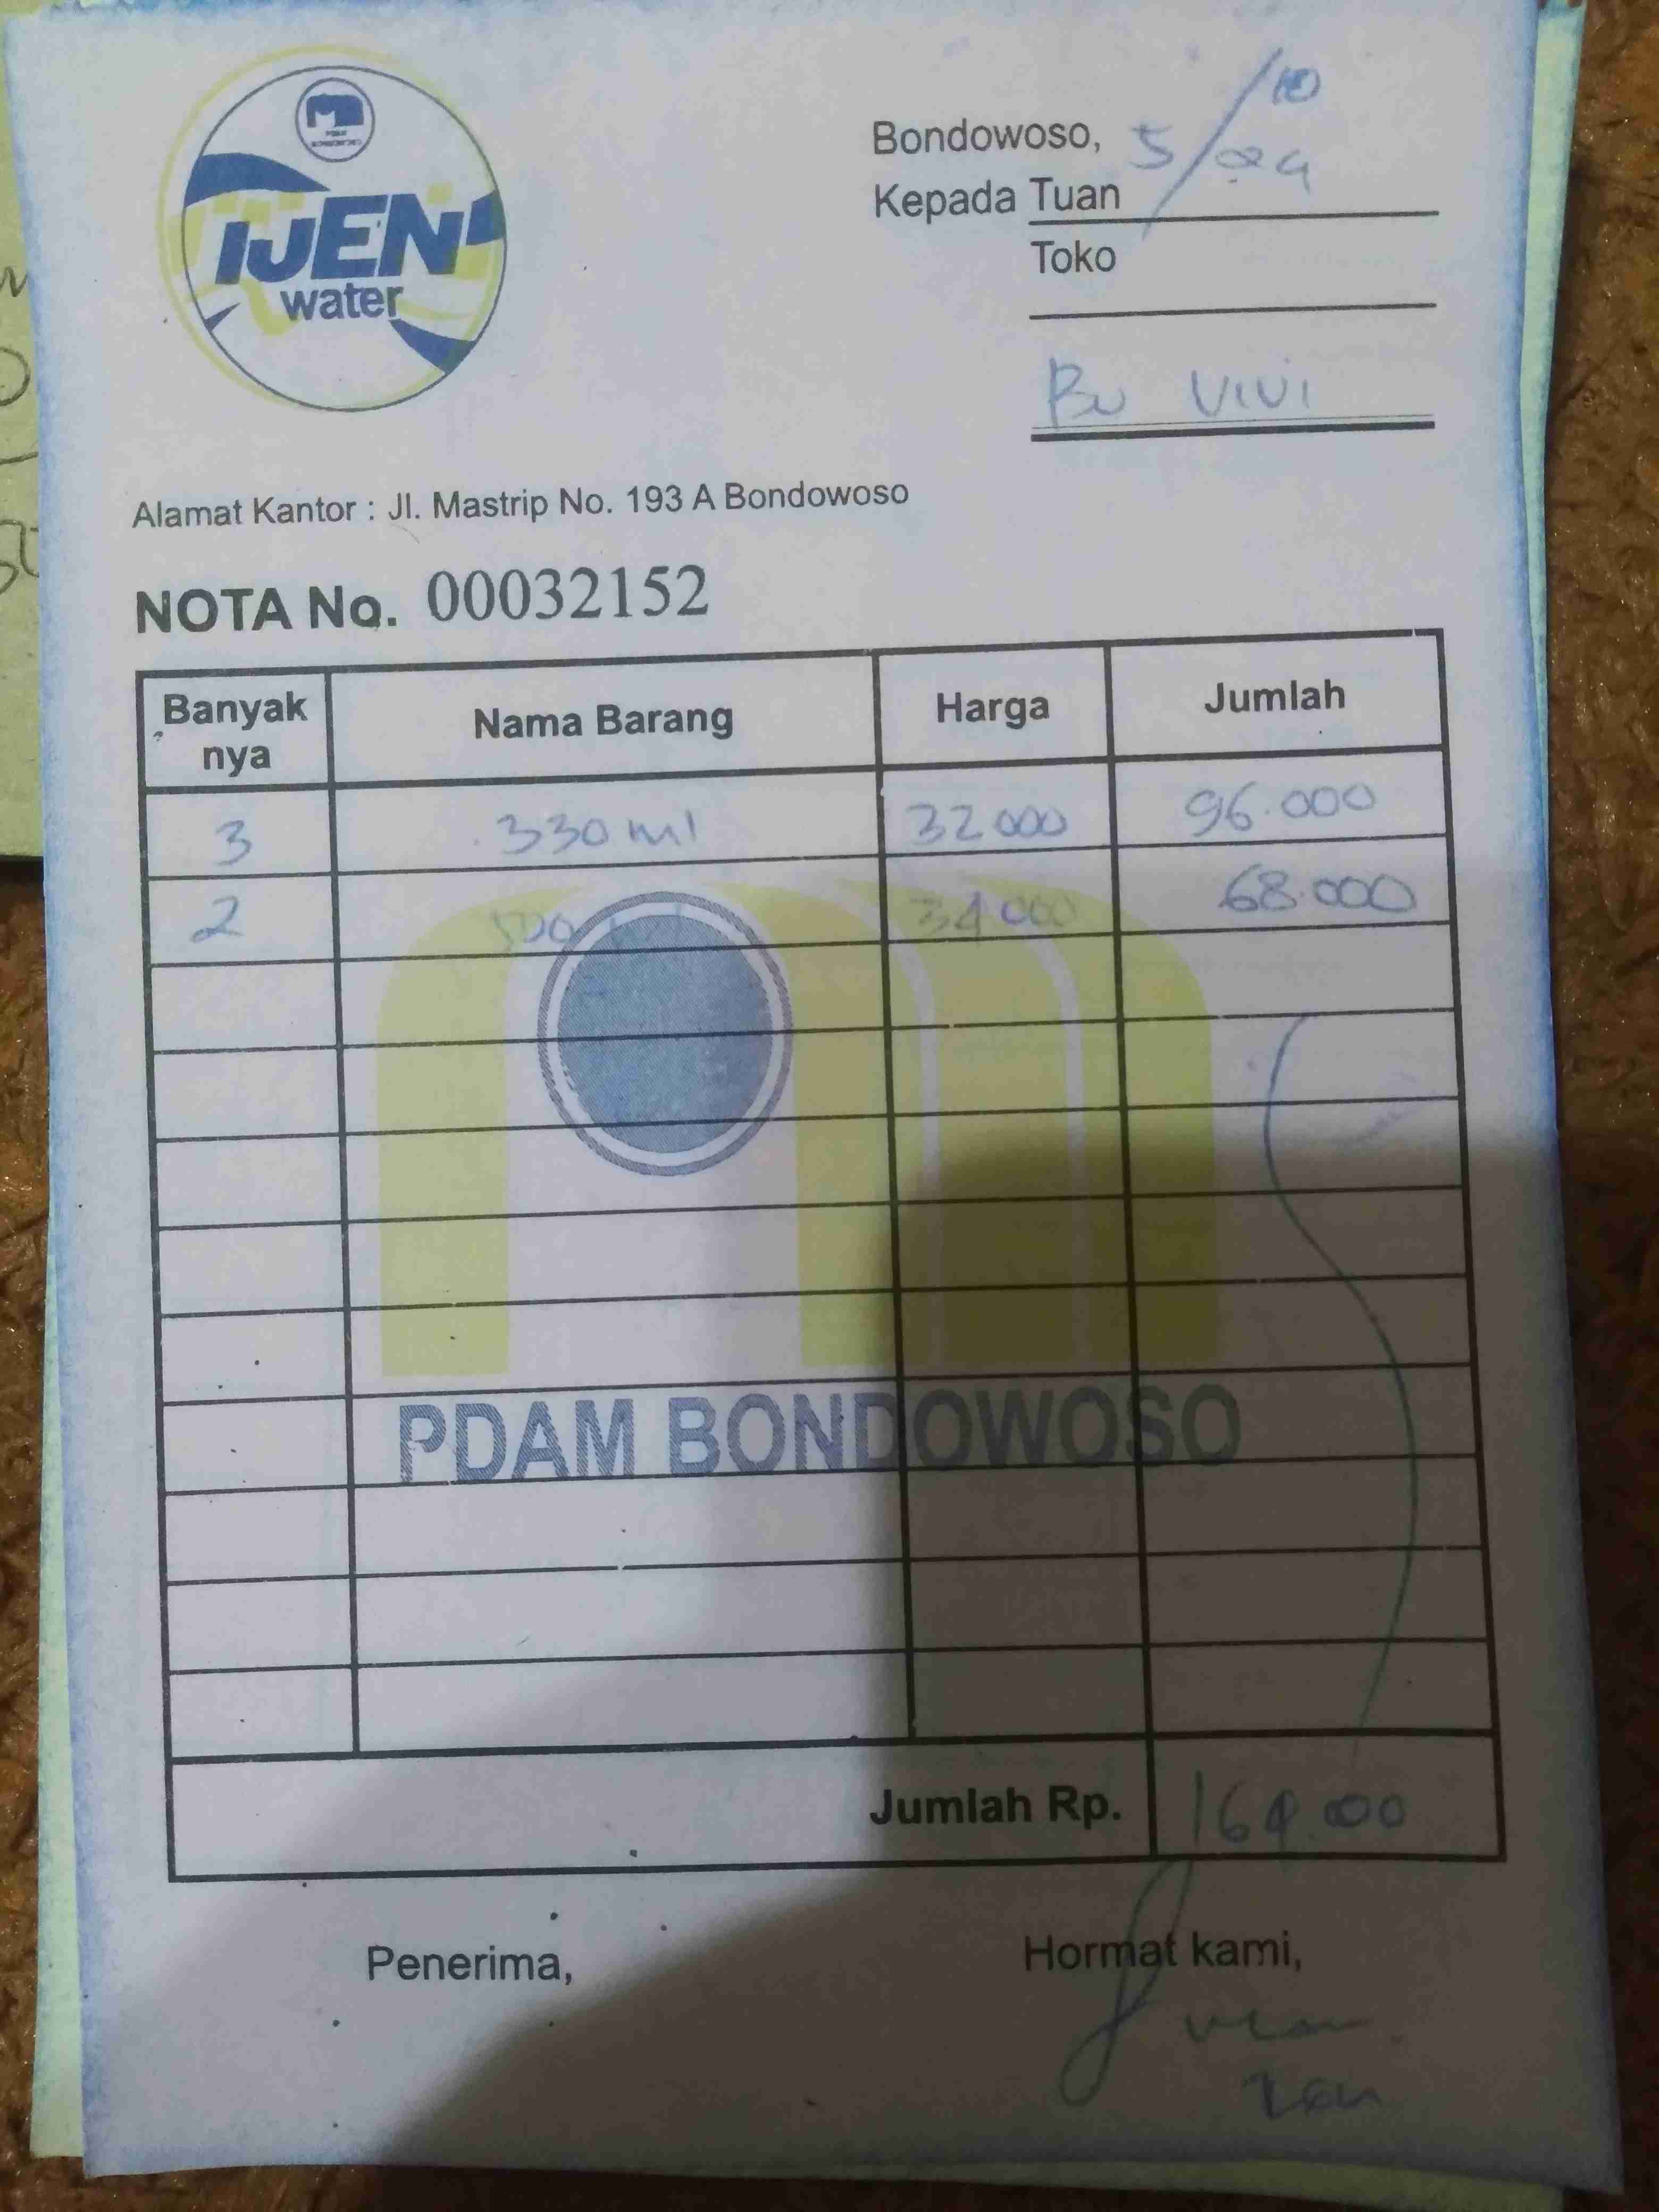 IJEN
water
Bondowoso, 5/10
24
Kepada Tuan
Toko
Bu VIVI
Alamat Kantor : Jl. Mastrip No. 193 A Bondowoso
NOTA No. 00032152
Banyak nya Nama Barang Harga Jumlah
3 330 ml 32 000 96.000
2 500 ml 34 000 68.000
PDAM BONDOWOSO
Jumlah Rp. 164.000
Penerima, Hormat kami,